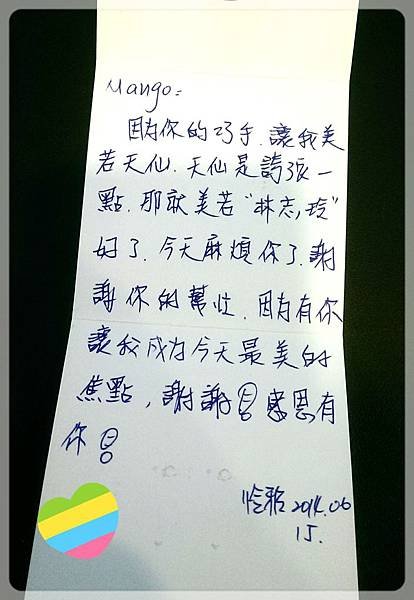 Mango:
因為你的巧手.讓我美
若天仙.天仙是誇張一
點.那就美若"林志玲"
好了.今天麻煩你了.謝
謝你的幫忙.因為有你
讓我成為今天最美的
焦點,謝謝!感恩有
你!
2014.06
15.